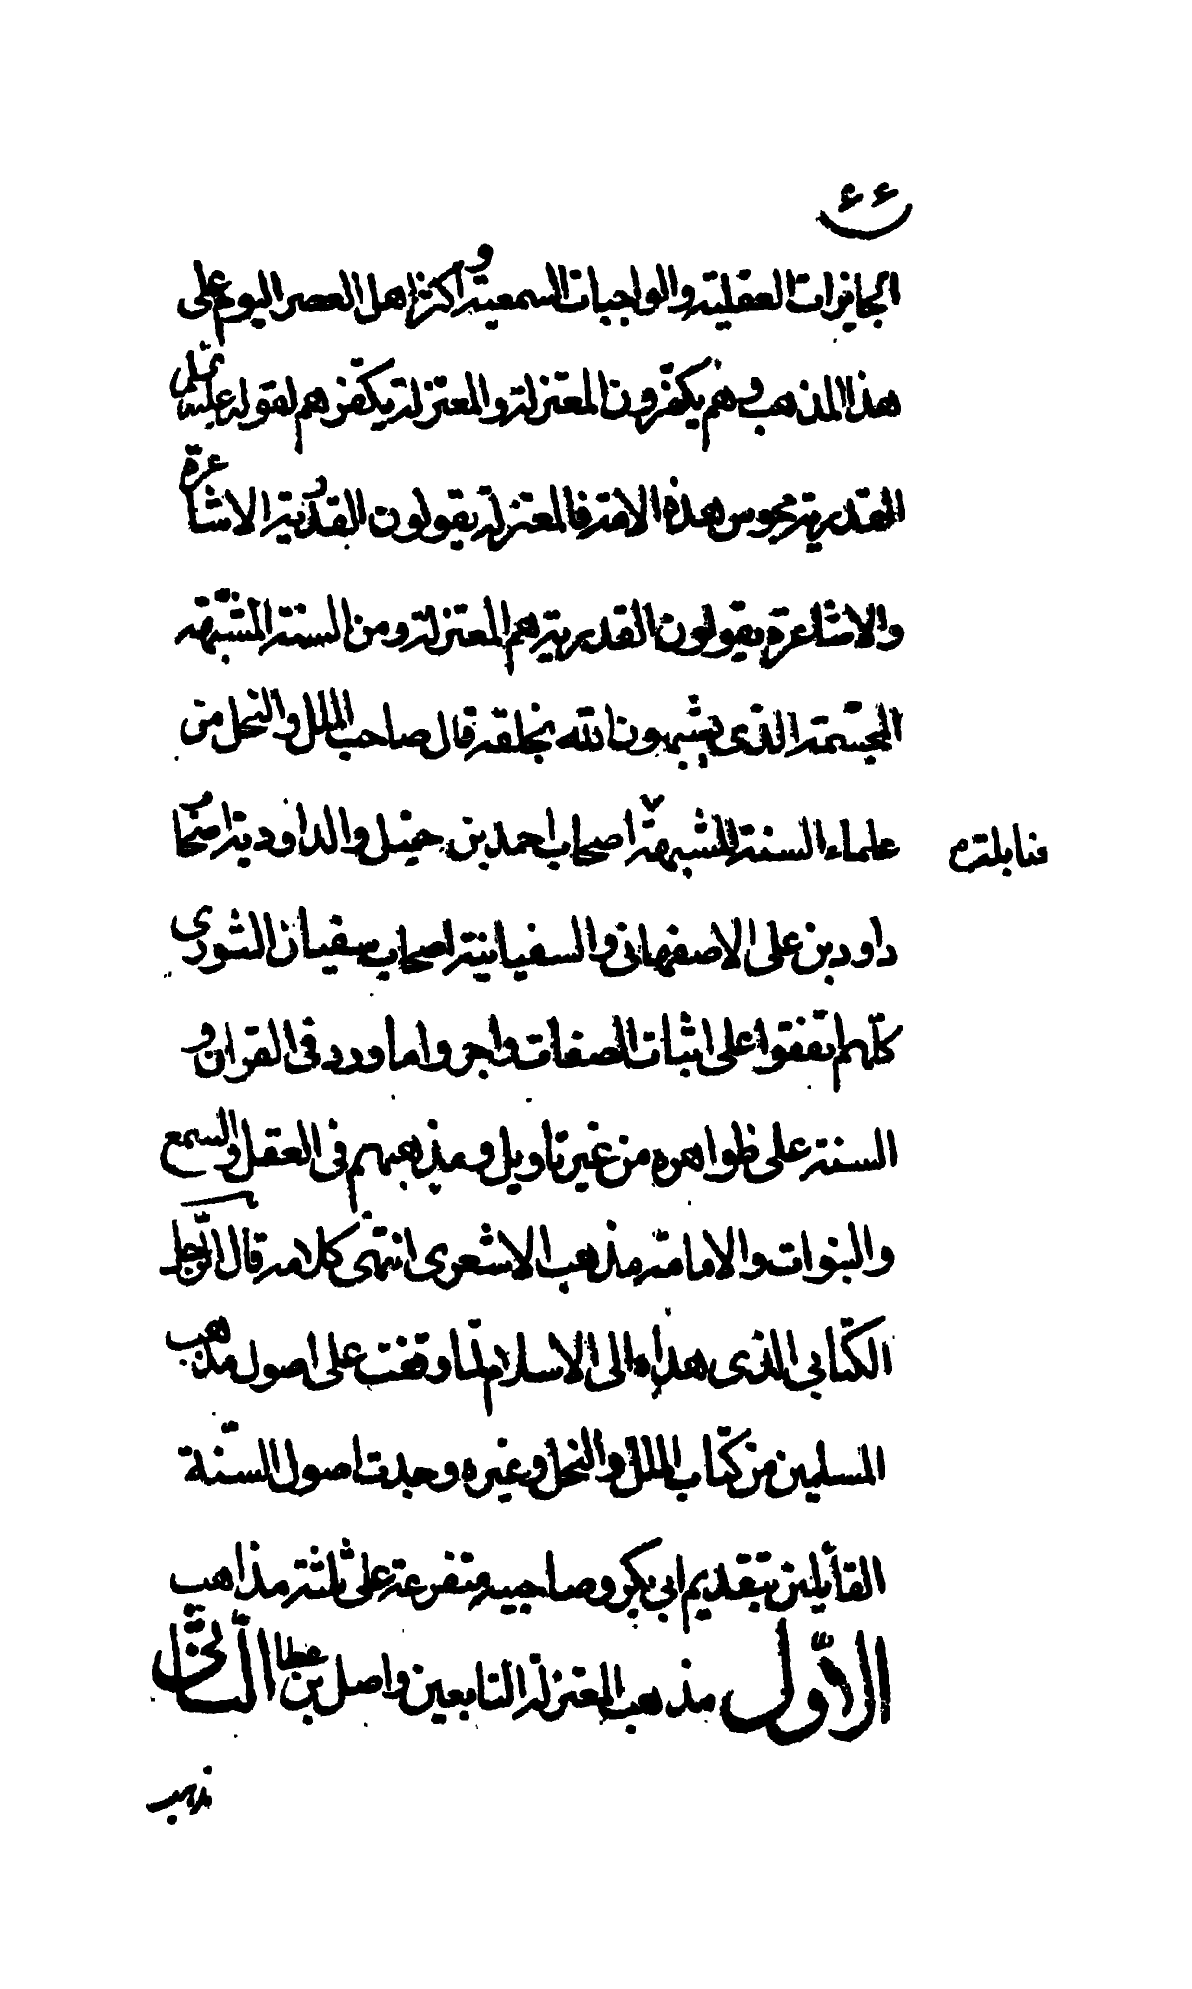 ٤٤
الجايزات العقلية والواجبات السمعية واكثر اهل العصر اليوم على
هذا المذهب وهم يكفّرون المعتزلة والمعتزلة تكفّرهم لقوله عليه
القدرية مجوس هذه الامة فالمعتزلة يقولون القدرية الاشاعرة
والاشاعرة يقولون القدرية هم المعتزلة ومن السنة المشبّهة
المجسّمة الذي يشبهون الله بخلقه قال صاحب الملل والنحل من
علماء السنة المشبهة اصحاب احمد بن حنبل والداودية اصحا
حنابلة
داود بن على الاصفهانى والسفيانية اصحاب سفيان الثورى
كلّهم اتفقوا على اثبات الصفات واجروا ما ورد فى القران و
السنة على ظواهره من غير تاويل ومذهبهم فى العقل والسمع
والنبوات والامامة مذهب الاشعرى انتهى كلامه قال الرّجل
الكتابى الذى هداه الى الاسلام لمّا وقفت على اصول مذهب
المسلمين من كتاب الملل والنحل وغيره وجدت اصول السنّة
القايلين بتقديم ابى بكر وصاحبيه متفرعة على ثلثة مذاهب
الاوّل مذهب المعتزلة التابعين واصل بن عطا الثانى
مذهب